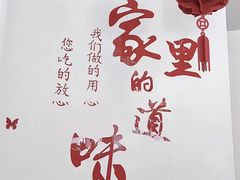 家里的味道
我们做的用心
您吃的放心